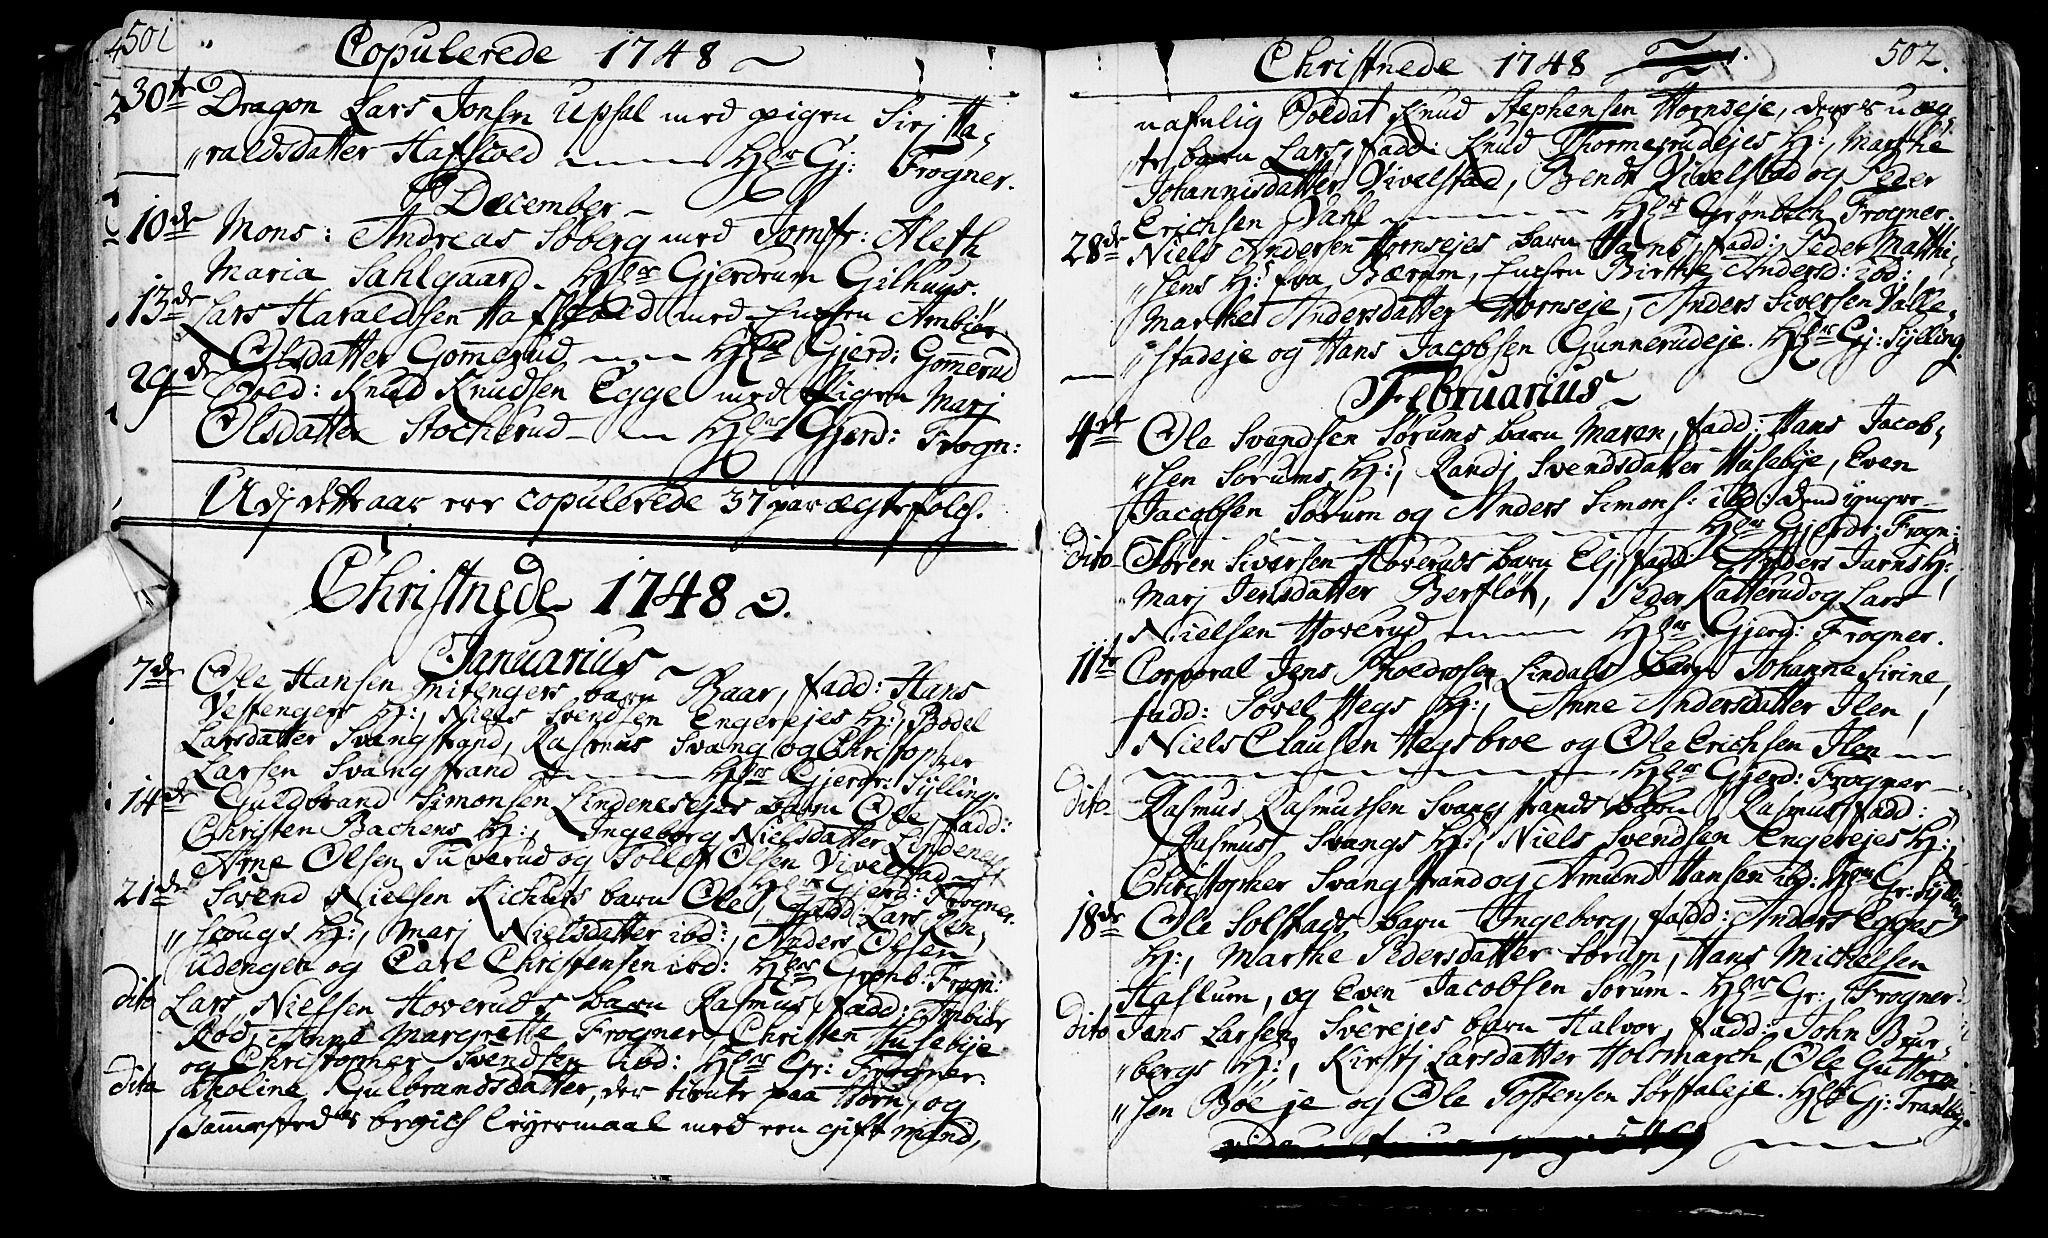 501
Copulerede 1748
30te Dragon Lars Jonsen Upsal med pigen Sirj Ha,
"raldsdatter Hafscold Hlr Gj: Frogner.
December
10de Mons: Andreas Soberg med Jomfr: Aleth
Maria Sahlgaard. Hlr Gjerdrum Gilhuus.
13de Lars Haraldsen Hafscold med Enchen Ambiør
Olsdatter Gomerud Hlr Gjerd: Gomerud
29de Sold: Knud Knudsen Egge med Pigen Marj
Olsdatter Stocherud Hlr Gjerd: Frogn:
Udj dette aar ere copulerede 37 par ægtefolch.
Christnede 1748
Januarius
7de Ole Hansen mitengers barn Baar, fadd: Hans
Vestengers H:, Niels Svendsen Engerejes H:, Bodel
Larsdatter Svangstrand, Rasmus Svang og Christopher
Larsen Svangstrand Hlr Gjerdr: Sylling.
14de Guldbrand Simonsen Lindenesejes barn Ole, fadd:
Christen Bachens H:, Ingeborg Nielsdatter Lindenes,
Arne Olsen Tuverud og Tollef Olsen Vivelstad
Hlr Gjerd: Frogner.
21de Svend Nielsen Kichuts barn Ole, fadd: Lars Ren,
"scougs H:, Marj Nielsdatter ibd:, Anders Olsen
Udengen og Carl Christensen ibd: Hlr Grønb: Frogn:
dito Lars Nielsen Hoveruds barn Rasmus, fadd: Ambiør
Rod, Anne Margrethe Frogner, Christen Husebije
og Christopher Svendsen ibd: Hlr Gr: Frogner.
dito Gulbrandsdatter, der tiente paa Horn, og
sammesteds begich leyermaal med een gift mand,
Christnede 1748
502.
nafnlig Soldat Knud Stephensen Hornseje, deres uæg,
"te barn Lars, fadd: Knud Thormesrudejes H:, Marthe
Johannisdatter Vivelstad, Bendt Vivelstad og Peder
Erichsen Dahl Hlr Grønbech Frogner.
28de Niels Andersen Hornsejes barn Hans, fadd: Peder Matthi,
"sens H: fra Bærum, Enchen Birthe Andersd: ibd:
Marthe Andersdatter Hornseje, Anders Siversen Valle,
"stadeje og Hans Jacobsen Gunnerudeje. Hlr Gj: Sylling.
Februarius
4de Ole Svendsen Sørums barn Maren, fadd: Hans Jacob,
"sen Sørums H:, Randj Svendsdatter Husebije, Even
Jacobsen Sørum og Anders Simons: ibd: dend yngre
Hlr Gjerdr: Frogn:
dito Søren Siversen Hoveruds barn Elj, fadd: H:,
Marj Jensdatter Berfløt, Peder Katterud og Lars
Nielsen Hoverud Hlr Gjerd: Frogner.
11te Corporal Jens Lindals barn Johanna Sirine,
fadd: Sovel Hegs H:, Anne Andersdatter Ilen,
Niels Clausen Hegsbroe og Ole Erichsen Ilen
Hlr Gjerd: Frogner
dito Rasmus Rasmussen Svangstrands barn Rasmus, fadd:
Rasmus Svangs H:, Niels Svendsen Engerejes H:,
Christopher Svangstrand og Amund Hansen ibd: Hlr Gr: Sylling
18de Ole Solstads barn Ingeborg, fadd: Anders Egges
H:, Marthe Pedersdatter Sørum, Hans Michelsen
Haslum, og Even Jacobsen Sørum. Hlr Gr: Frogner.
dito Jens Larsen Sverejes barn Halvor, fadd: John Buur,
"bergs H:, Kirstj Larsdatter Holsmarch, Ole Guttorm,
"sen Bøe je og Ole Tostensen Sørsdaleje. Hlr Gj: Tranbij.